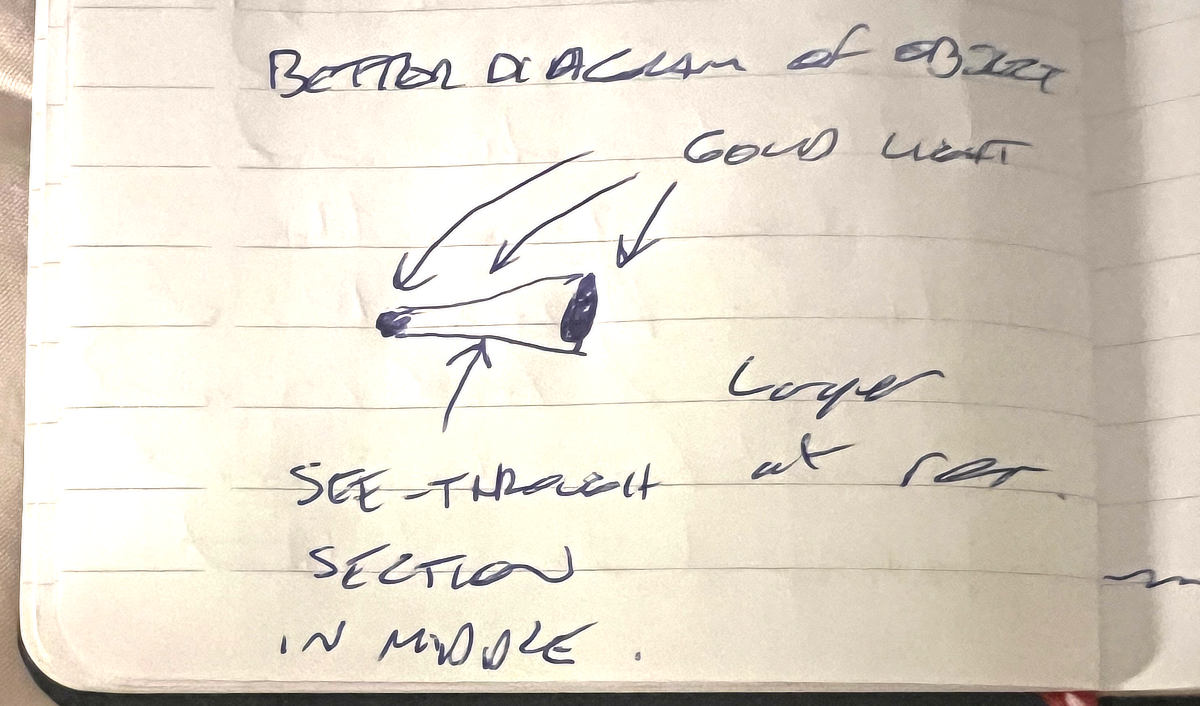 BETTER DIAGRAM of OBJECT
GOLD LIGHT
Larger
at rear.
SEE-THROUGH
SECTION
IN MIDDLE.